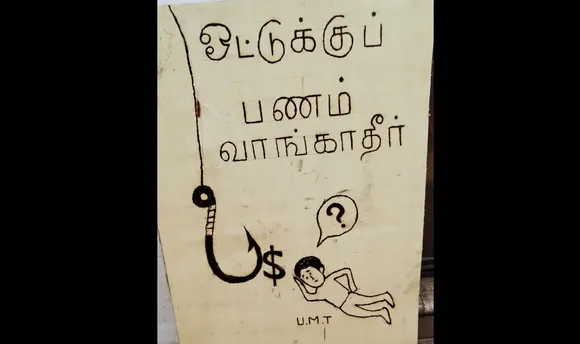 ஓட்டுக்குப்
பணம்
வாங்காதீர்
?
$
U.M.T